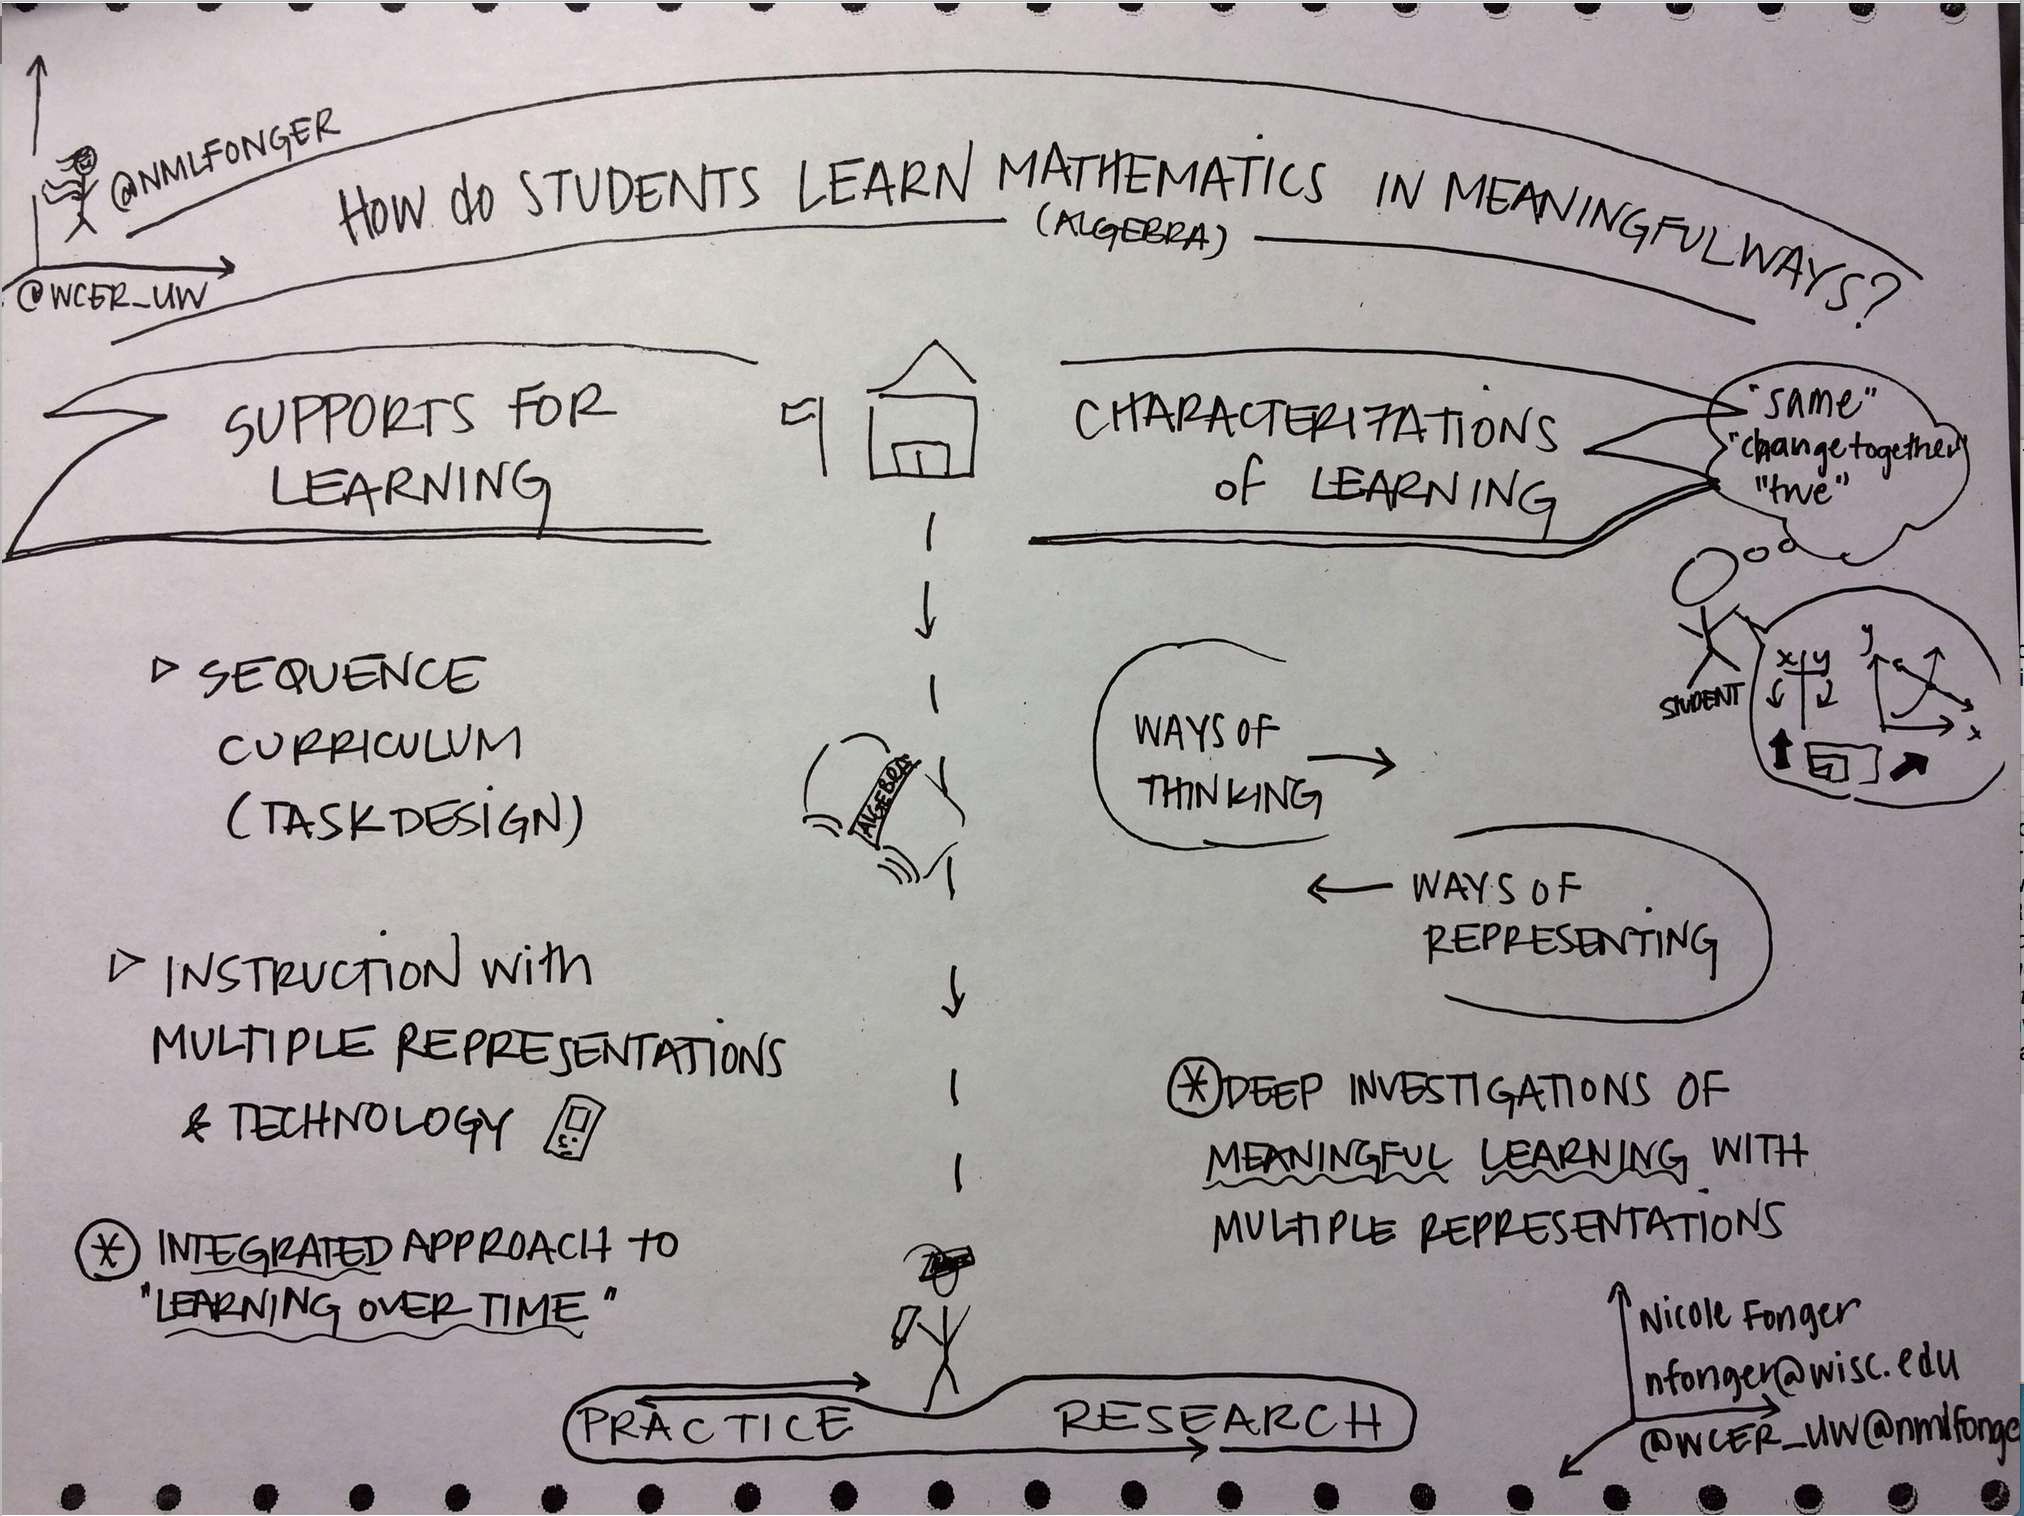 @NMLFONGER
@WCER_UW
HOW do STUDENTS LEARN MATHEMATICS IN MEANINGFUL WAYS?
(ALGEBRA)
SUPPORTS FOR
LEARNING
CHARACTERIZATIONS
of LEARNING
"same"
"change together"
"true"
STUDENT
x y
y
x
▷ SEQUENCE
CURRICULUM
(TASK DESIGN)
ALGEBRA
WAYS OF
THINKING
WAYS OF
REPRESENTING
▷ INSTRUCTION with
MULTIPLE REPRESENTATIONS
& TECHNOLOGY
* INTEGRATED APPROACH TO
"LEARNING OVER TIME"
* DEEP INVESTIGATIONS OF
MEANINGFUL LEARNING WITH
MULTIPLE REPRESENTATIONS
PRACTICE RESEARCH
Nicole Fonger
nfonger@wisc.edu
@WCER_UW @nmlfonge